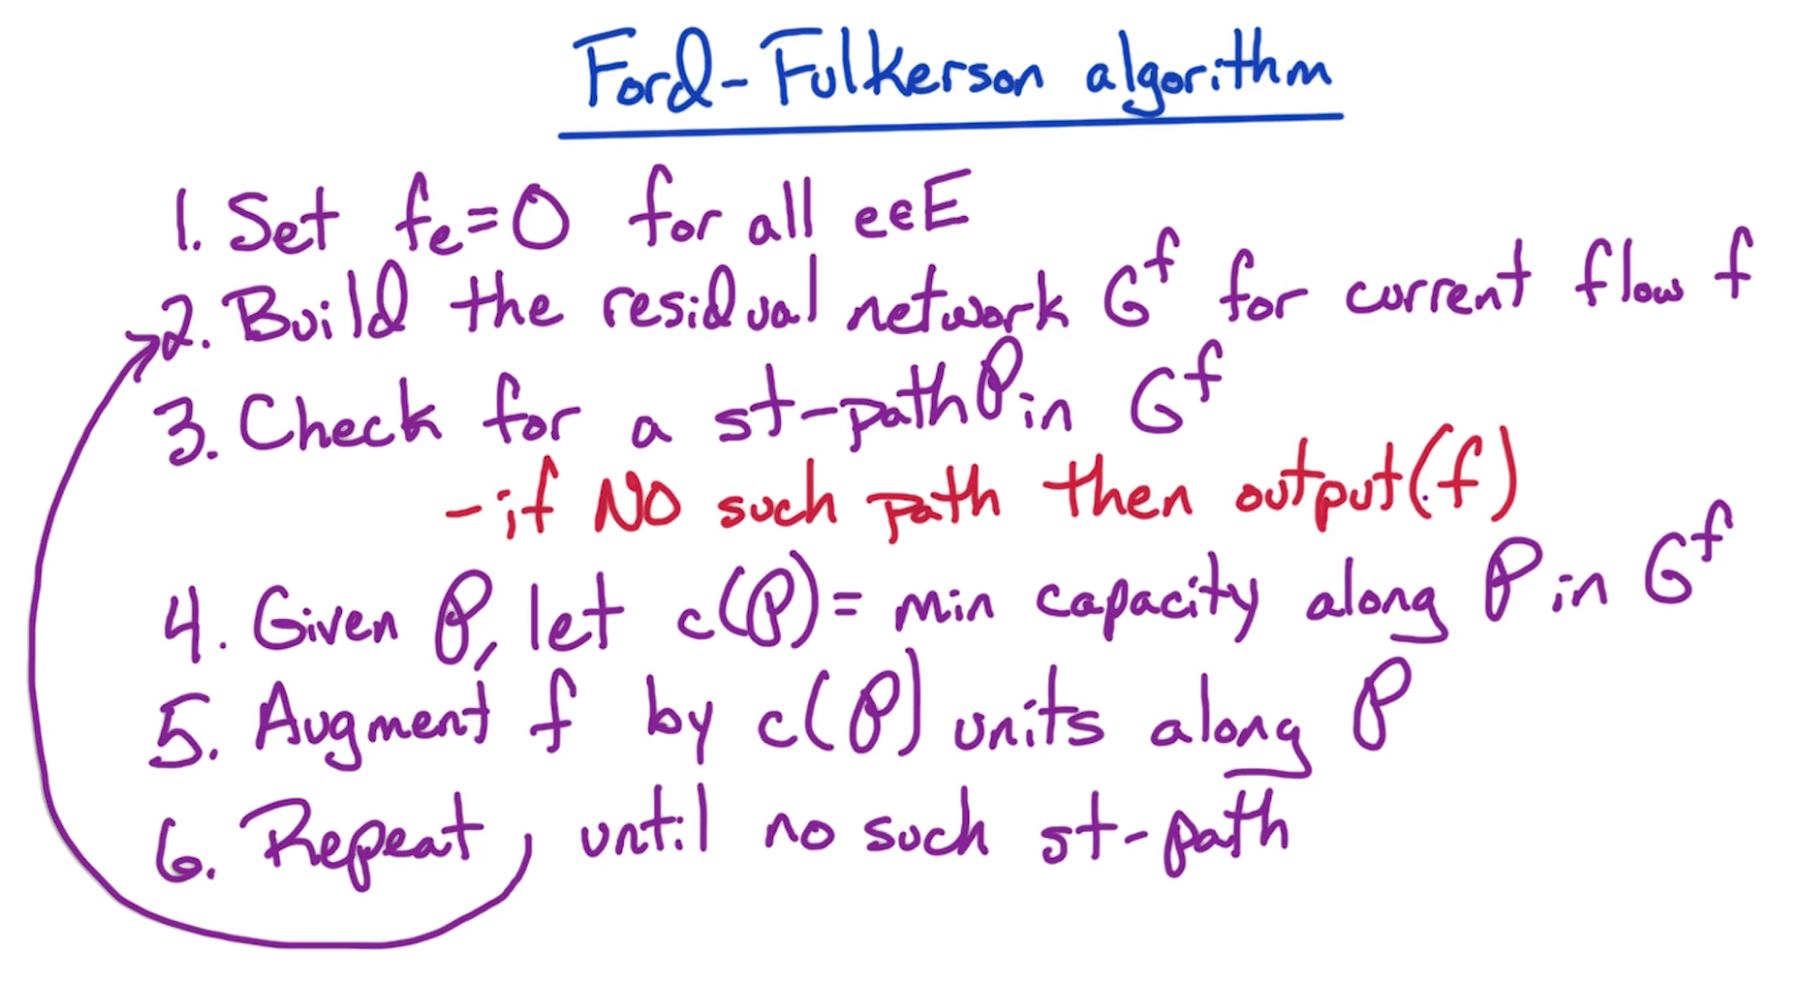 Ford-Fulkerson algorithm
1. Set fe=0 for all e∈E
2. Build the residual network G^f for current flow f
3. Check for a st-path P in G^f
-if NO such path then output(f)
4. Given P, let c(P)= min capacity along P in G^f
5. Augment f by c(P) units along P
6. Repeat until no such st-path